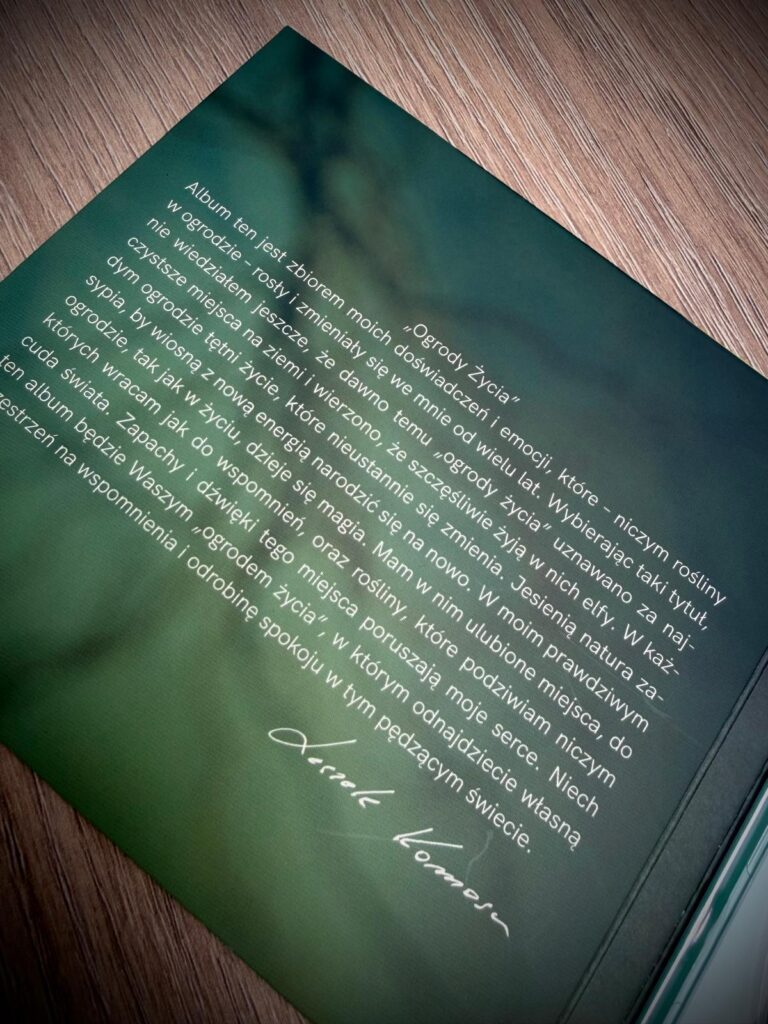 „Ogrody Życia”
Album ten jest zbiorem moich doświadczeń i emocji, które – niczym rośliny
w ogrodzie – rosły i zmieniały się we mnie od wielu lat. Wybierając taki tytuł,
nie wiedziałem jeszcze, że dawno temu „ogrody życia” uznawano za naj-
czystsze miejsca na ziemi i wierzono, że szczęśliwie żyją w nich elfy. W każ-
dym ogrodzie tętni życie, które nieustannie się zmienia. Jesienią natura za-
sypia, by wiosną z nową energią narodzić się na nowo. W moim prawdziwym
ogrodzie, tak jak w życiu, dzieje się magia. Mam w nim ulubione miejsca, do
których wracam jak do wspomnień, oraz rośliny, które podziwiam niczym
cuda świata. Zapachy i dźwięki tego miejsca poruszają moje serce. Niech
ten album będzie Waszym „ogrodem życia”, w którym odnajdziecie własną
zestrzeń na wspomnienia i odrobinę spokoju w tym pędzącym świecie.
Leszek Komosa